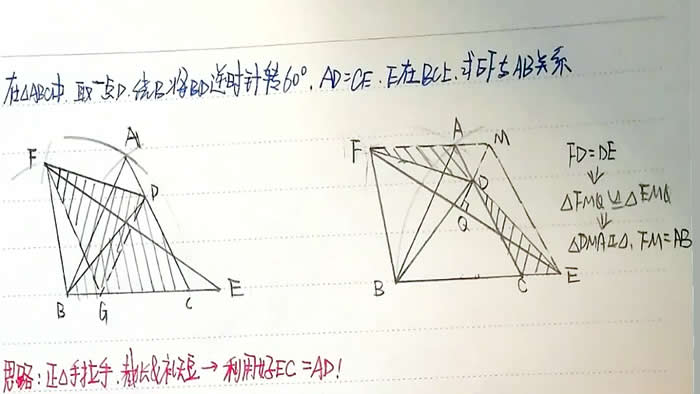 在△ABC中,取一点D,绕B将BD逆时针转60°,AD=CE,E在BC上,求EF与AB关系
A
F
D
B
G
C
E
F
A
M
D
Q
B
C
E
FD=DE
⇓
△FMQ≌△EMQ
⇓
△DMA正△,FM=AB
思路:正△手拉手,截长&补短→利用好EC=AD!